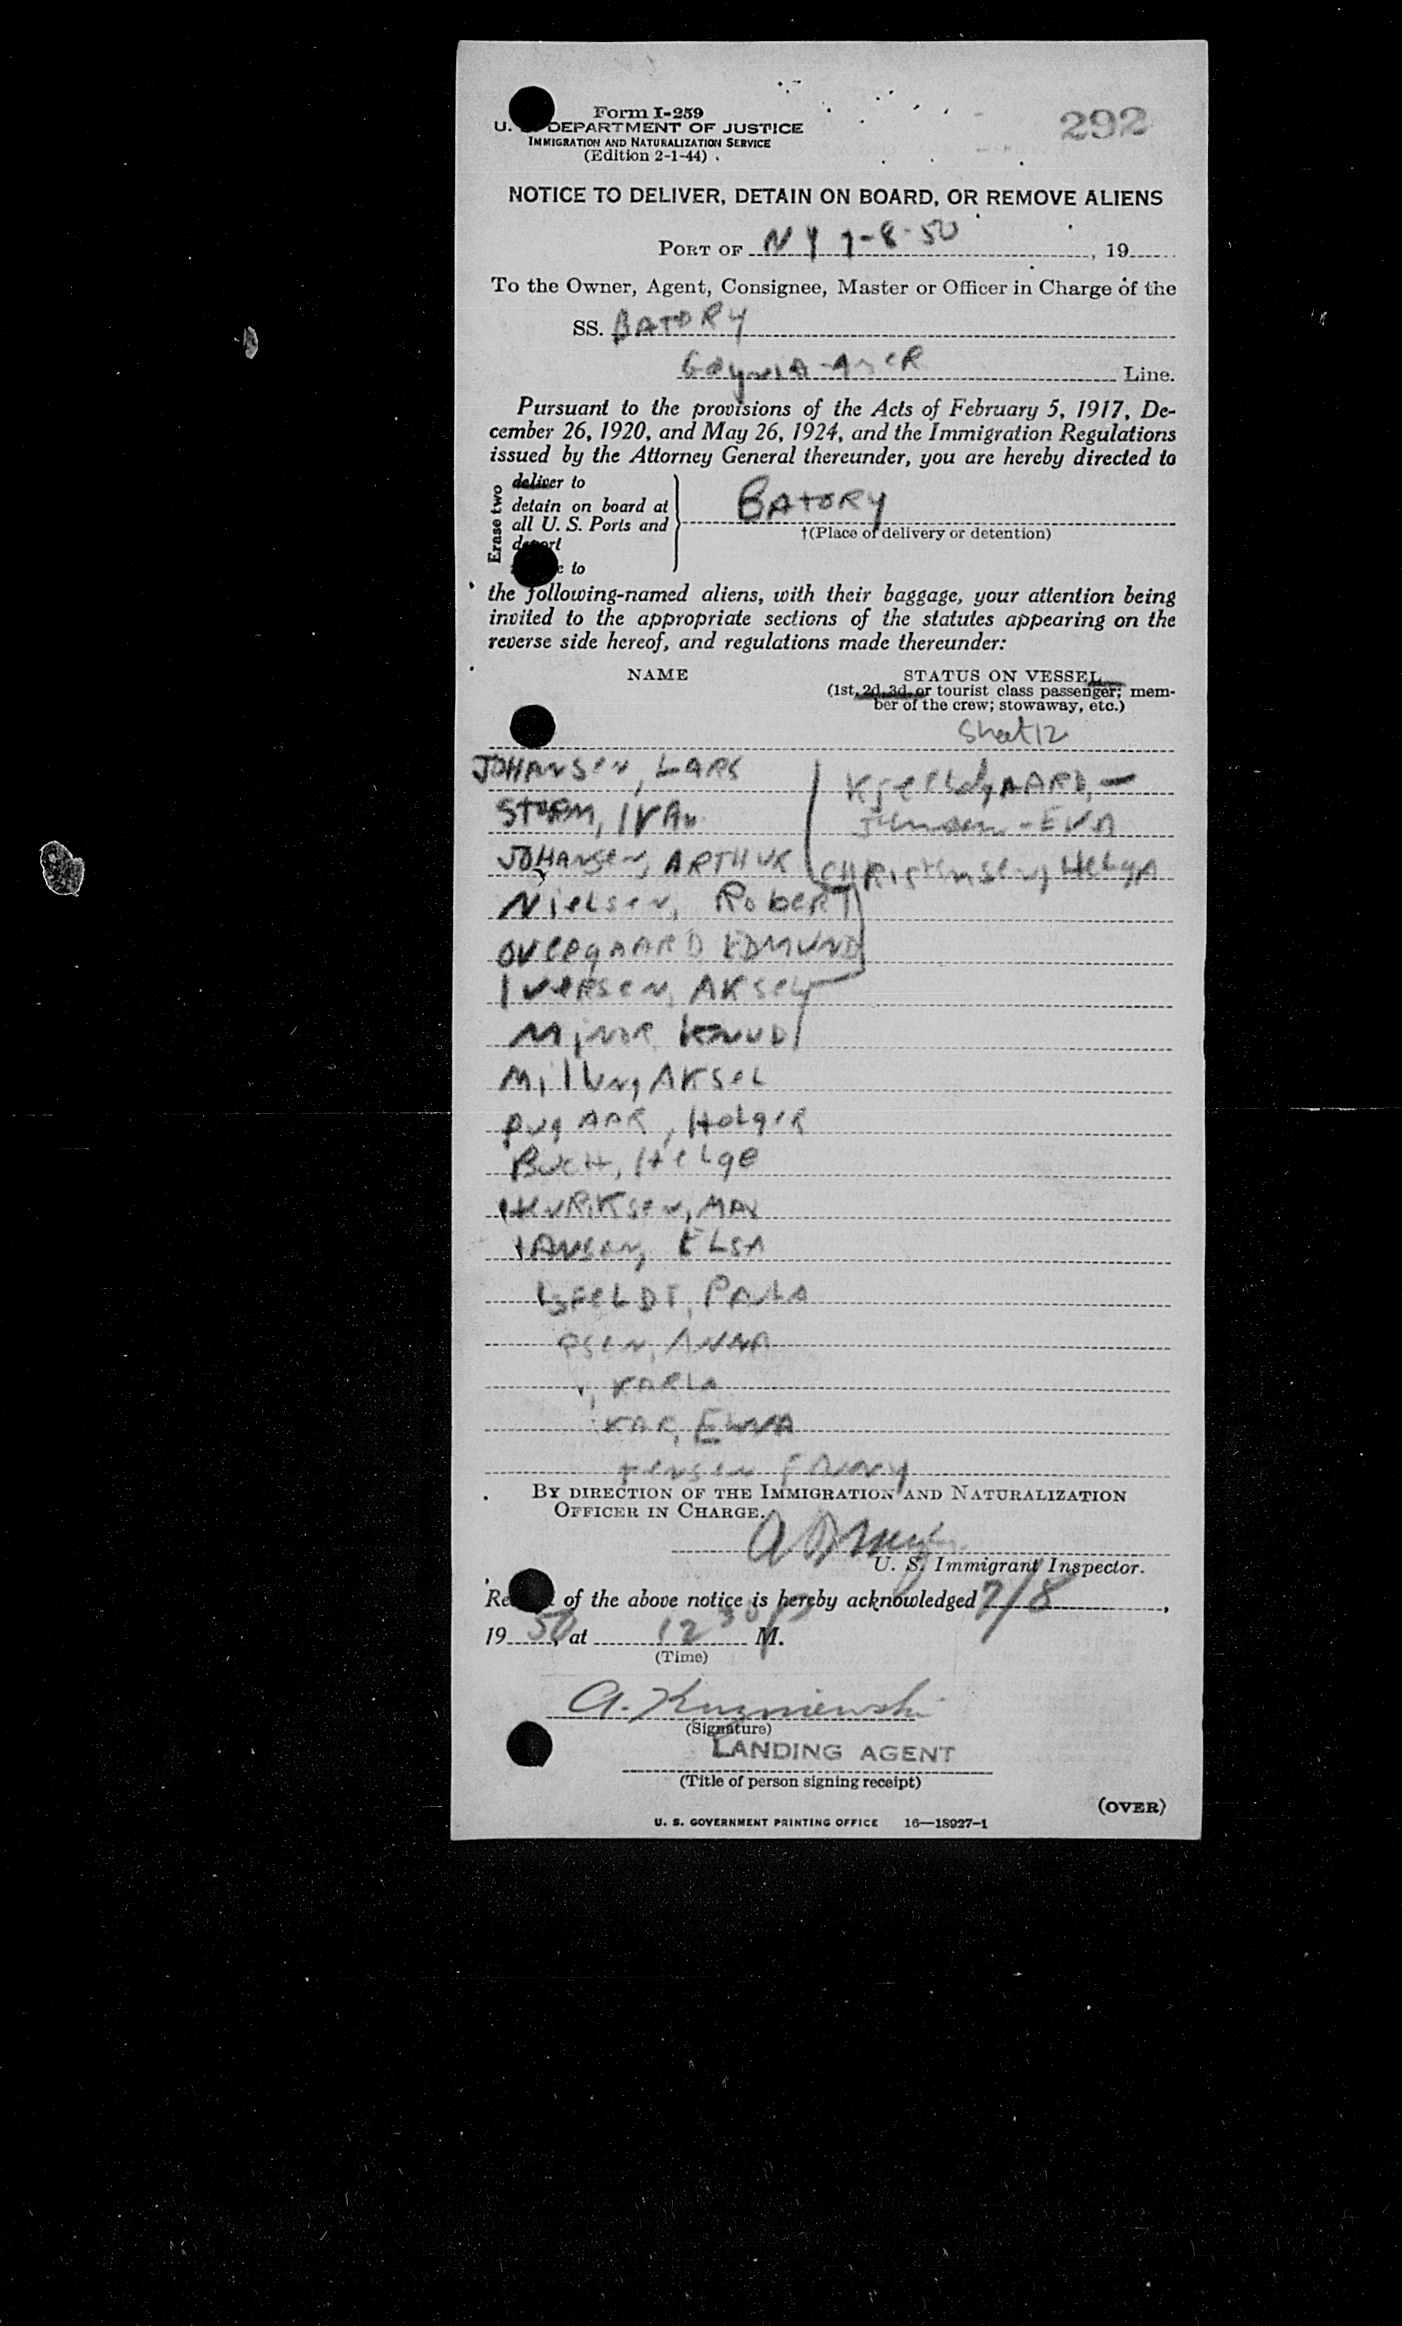 Form I-259
292
U. DEPARTMENT OF JUSTICE
IMMIGRATION AND NATURALIZATION SERVICE
(Edition 2-1-44)
NOTICE TO DELIVER, DETAIN ON BOARD, OR REMOVE ALIENS
PORT OF NY 7-8-50, 19
To the Owner, Agent, Consignee, Master or Officer in Charge of the
SS. BATORY
Line.
Pursuant to the provisions of the Acts of February 5, 1917, De-
cember 26, 1920, and May 26, 1924, and the Immigration Regulations
issued by the Attorney General thereunder, you are hereby directed to
Erase two
deliver to
detain on board at
all U. S. Ports and
BATORY
†(Place of delivery or detention)
to
the following-named aliens, with their baggage, your attention being
invited to the appropriate sections of the statutes appearing on the
reverse side hereof, and regulations made thereunder:
NAME
STATUS ON VESSEL
(1st, 2d, 3d, or tourist class passenger; mem-
ber of the crew; stowaway, etc.)
Sheet 12
JOHANSEN, LARS
STORM, IVAN
EVA
JOHANSEN, ARTHUR
CHRISTENSEN, HELGA
NIELSEN, ROBERT
OVERGAARD EDMUND
IVERSEN, AKSEL
KNUD
AKSEL
HOLGER
BUCH, HELGE
HENRIKSEN, MAX
HANSEN, ELSA
PAULA
ANNA
KARLA
JENSEN FANNY
BY DIRECTION OF THE IMMIGRATION AND NATURALIZATION
OFFICER IN CHARGE.
U. S. Immigrant Inspector.
of the above notice is hereby acknowledged 7/8,
19 50, at 12 30 P M.
(Time)
A. Kuzniewski
(Signature)
LANDING AGENT
(Title of person signing receipt)
(OVER)
U. S. GOVERNMENT PRINTING OFFICE 16—18927-1